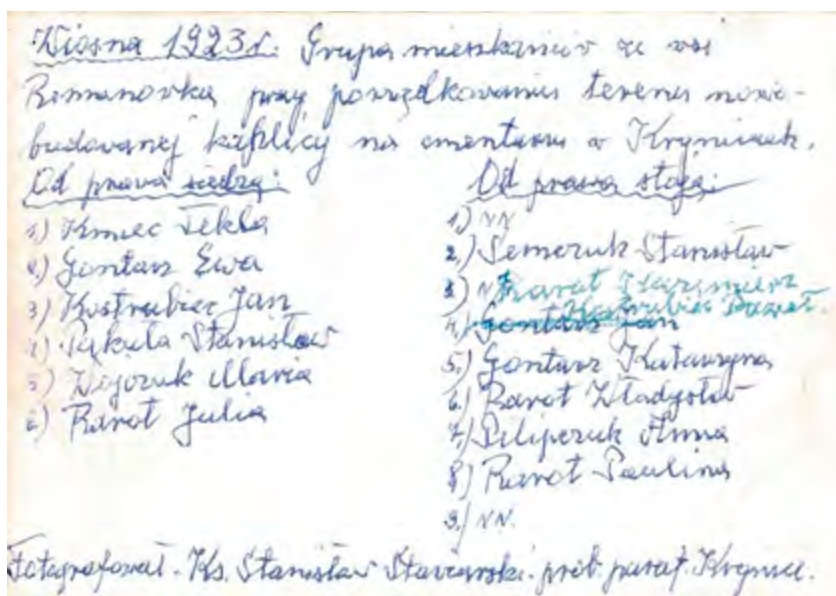 Wiosna 1923r. Grupa mieszkańców ze wsi
Romanówka przy porządkowaniu terenu nowo-
budowanej kaplicy na cmentarzu w Krynicach.
Od prawa siedzą:
1) Kmieć Tekla
2) Gontarz Ewa
3) Kostrubiec Jan
4) Pękala Stanisław
5) Wojczuk Maria
6) Rarot Julia
Od prawa stoją:
1) NN
2.) Semczuk Stanisław
3) N Rarot Kazimierz
4.) Gontarz Jan Kostrubiec Paweł
5.) Gontarz Katarzyna
6.) Rarot Władysław
7.) Pilipczuk Anna
8.) Rarot Paulina
9.) NN.
Fotografował - Ks. Stanisław prob. paraf. Krynice.